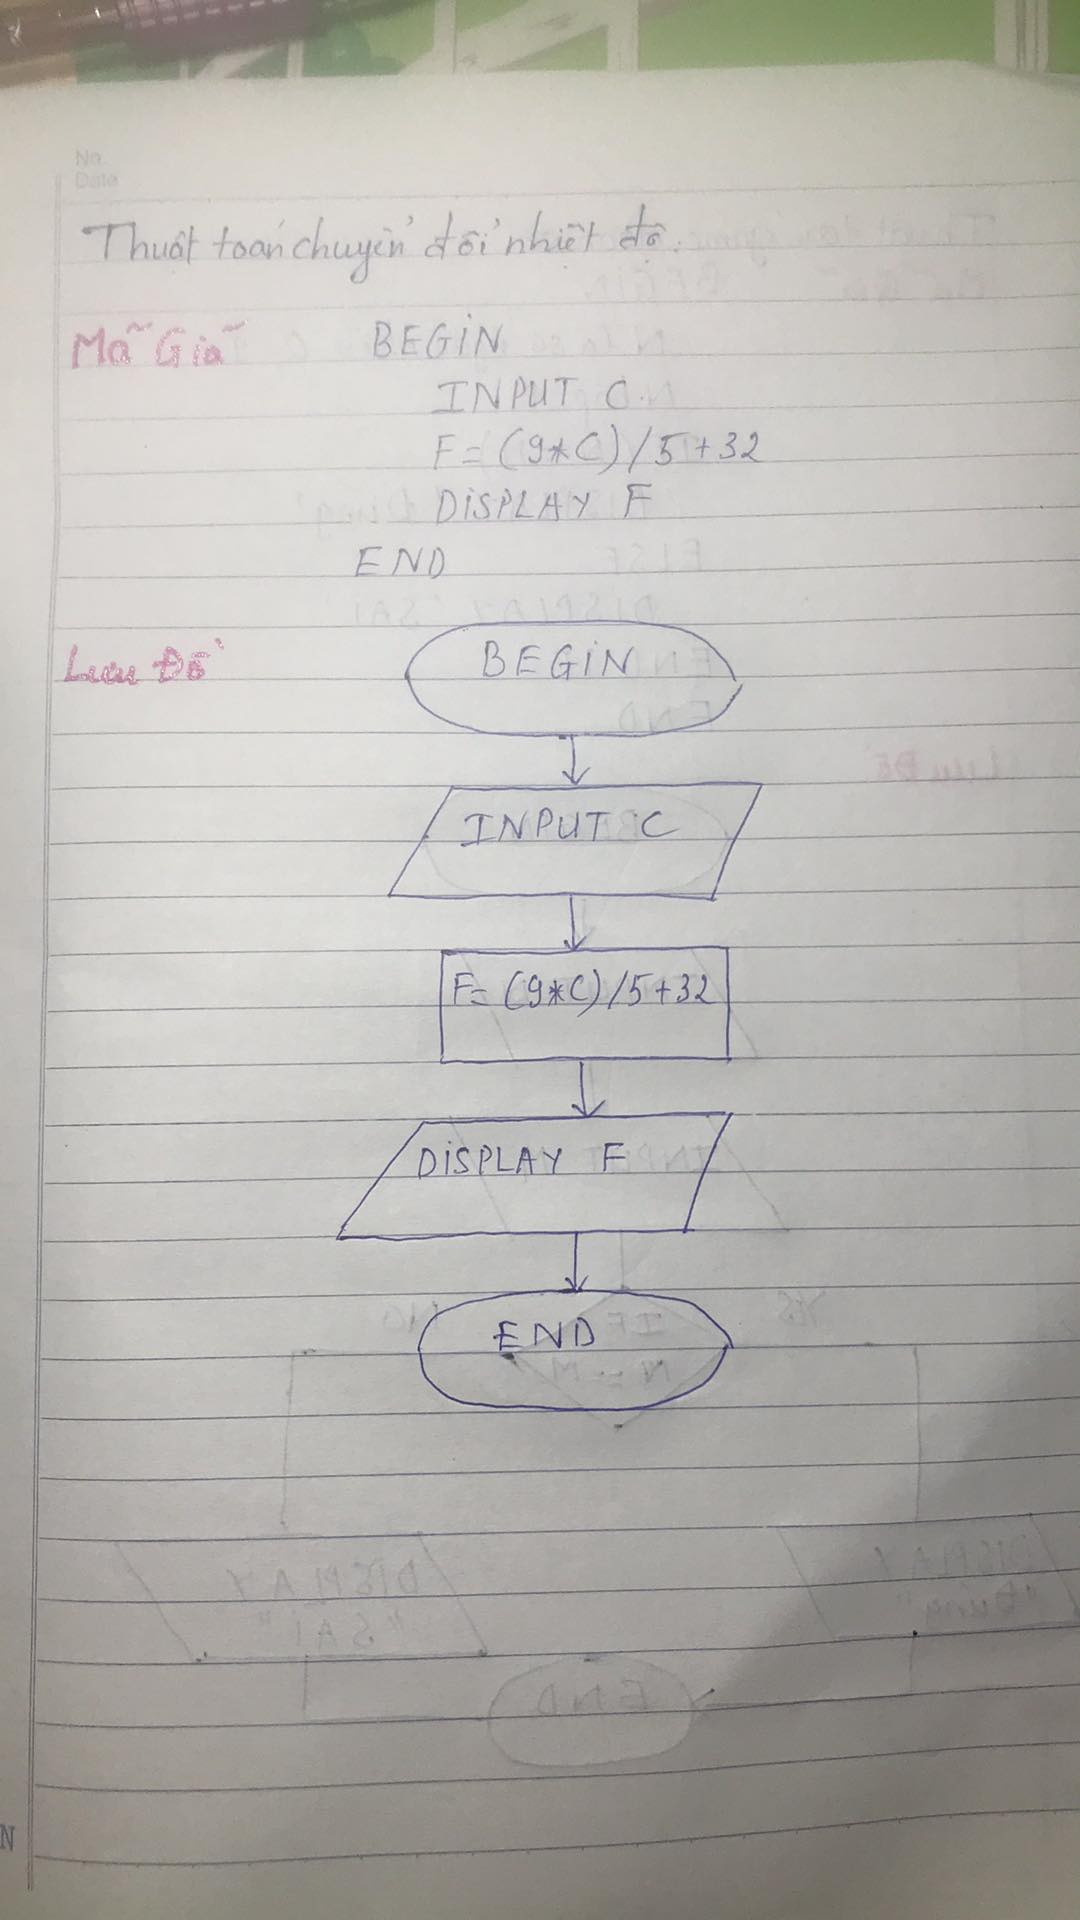 No.
Date
Thuật toán chuyển đổi nhiệt độ.
Mã Giã BEGIN
INPUT C.
F=(9*C)/5+32
DISPLAY F
END
Lưu Đồ
BEGIN
INPUT C
F=(9*C)/5+32
DISPLAY F
END
N